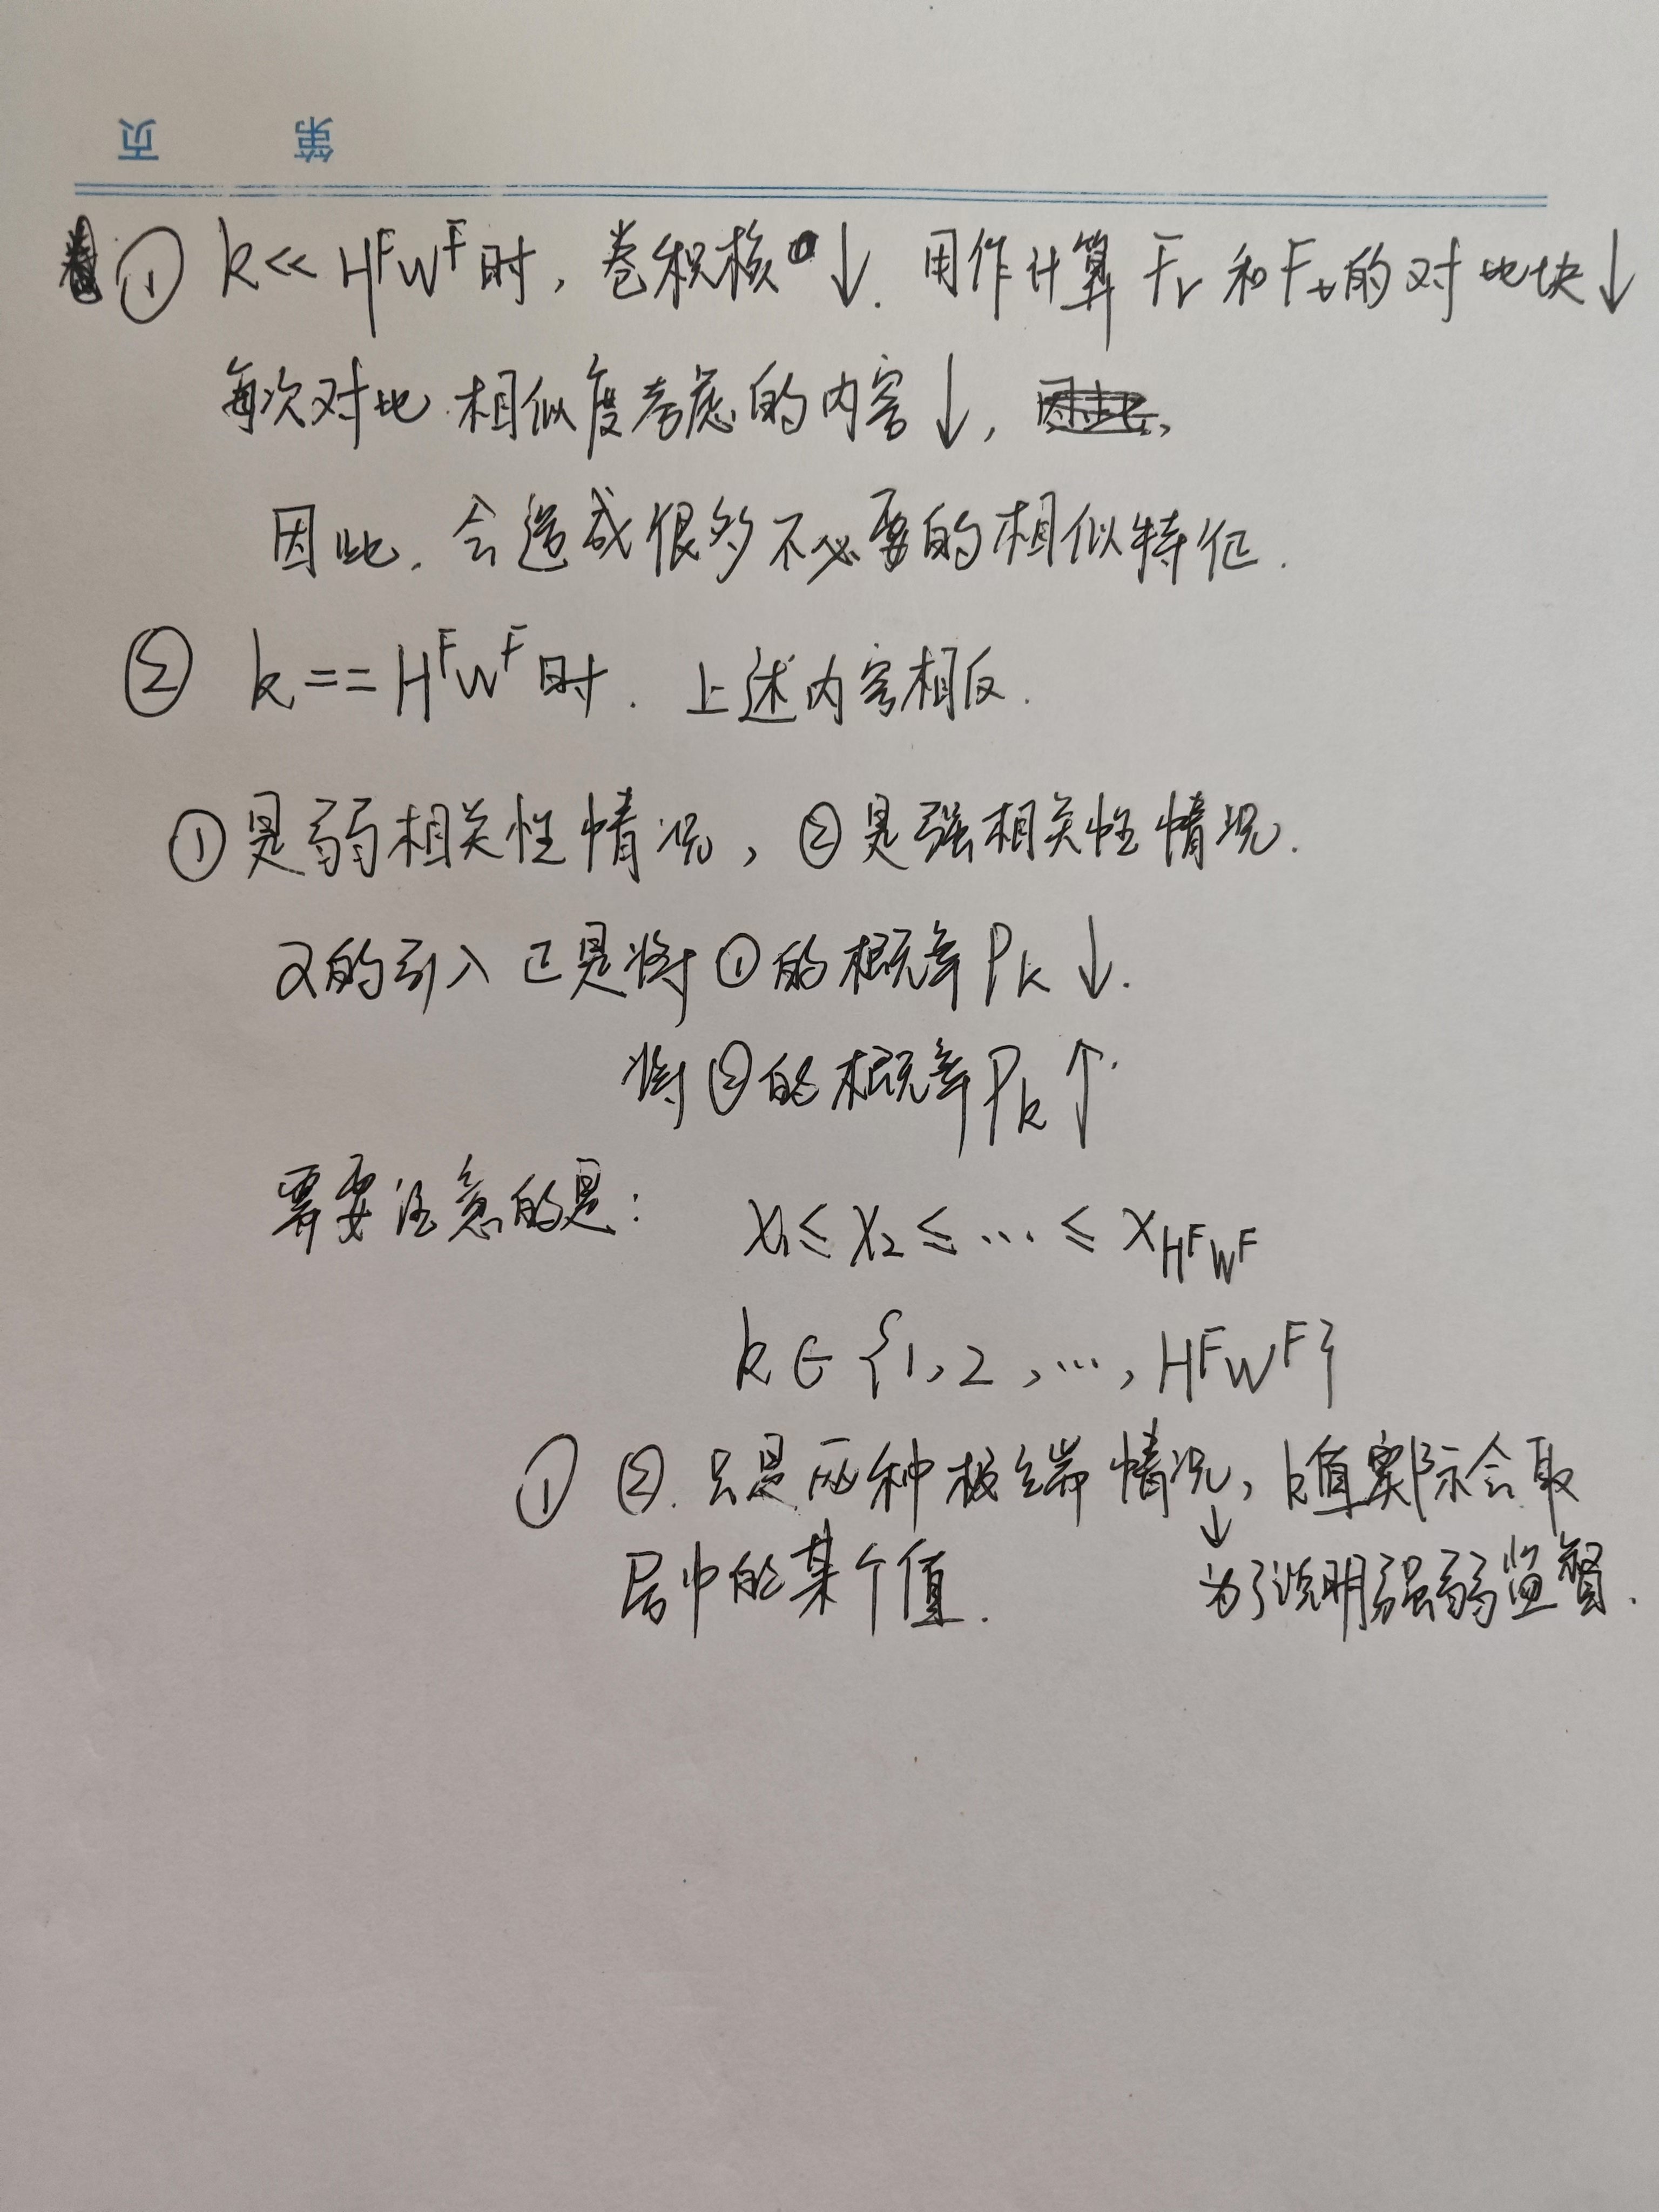 第 页
① k << H^F W^F 时, 卷积核 ↓. 用作计算 Fr 和 Ft 的对比块 ↓
每次对比 相似度考虑的内容 ↓,
因此. 会造成很多不必要的相似特征.
② k == H^F W^F 时. 上述内容相反.
① 是弱相关性情况, ② 是强相关性情况.
α的引入正是将①的概率 Pk ↓.
将②的概率 Pk ↑.
需要注意的是:
x₁ ≤ x₂ ≤ … ≤ x_{H^F W^F}
k ∈ {1, 2, …, H^F W^F}
① ②. 只是两种极端情况, k值实际会取
居中的某个值. ↓ 为了说明强弱监督.